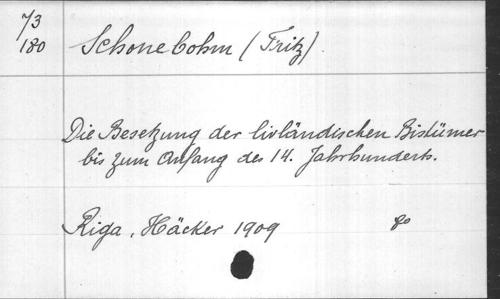 73
180
Schonebohm (Fritz).
Die Besetzung der livländischen Bistümer
bis zum Anfang des 14. Jahrhunderts.
Riga, Häcker 1909